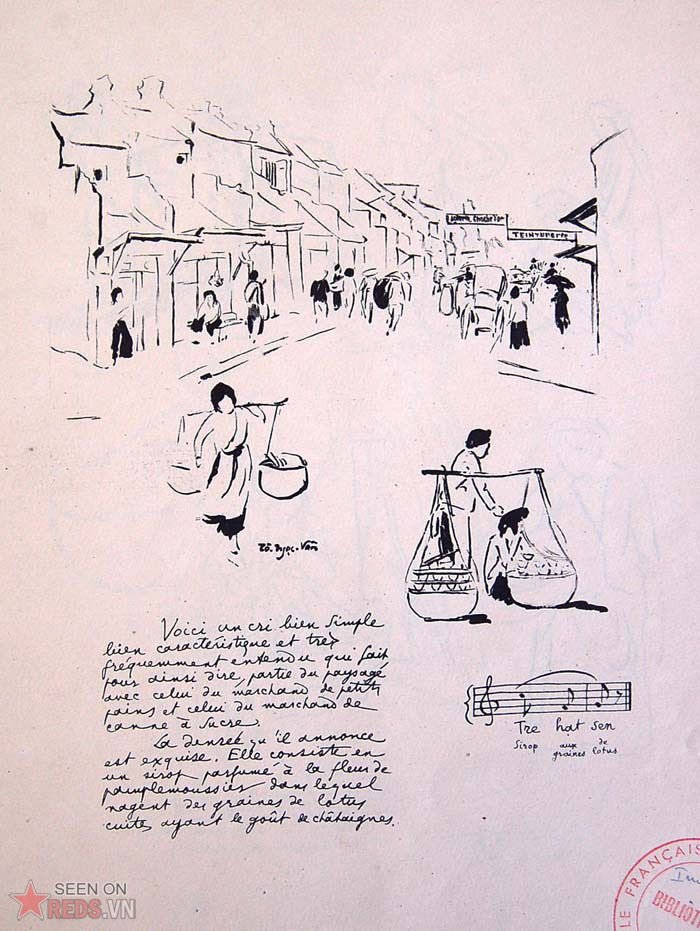 TEINTURERIE
Tô-Ngọc-Vân
Voici un cri bien simple
bien caractéristique et très
fréquemment entendu qui fait
pour ainsi dire, partie du paysage
avec celui du marchand de petits
pains et celui du marchand de
canne à sucre.
La denrée qu'il annonce
est exquise. Elle consiste en
un sirop parfumé à la fleur de
pamplemoussier dans lequel
nagent des graines de lotus
cuites ayant le goût de châtaignes.
Tre hat sen
Sirop aux graines de lotus
LE FRANÇAIS
BIBLIOT
SEEN ON
REDS.VN